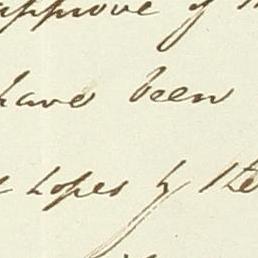 approve of
have been
hopes by the